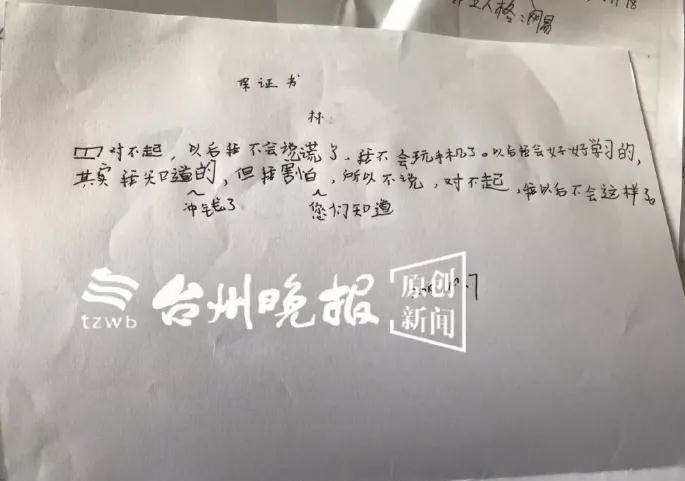 人格:网易
18
保证书
对不起，以后我不会说谎了，我不会玩手机了。以后我会好好学习的，
其实我知道的，但我害怕，所以不说，对不起，我以后不会这样了。
冲钱了 您们知道
tzwb 台州晚报 原创新闻